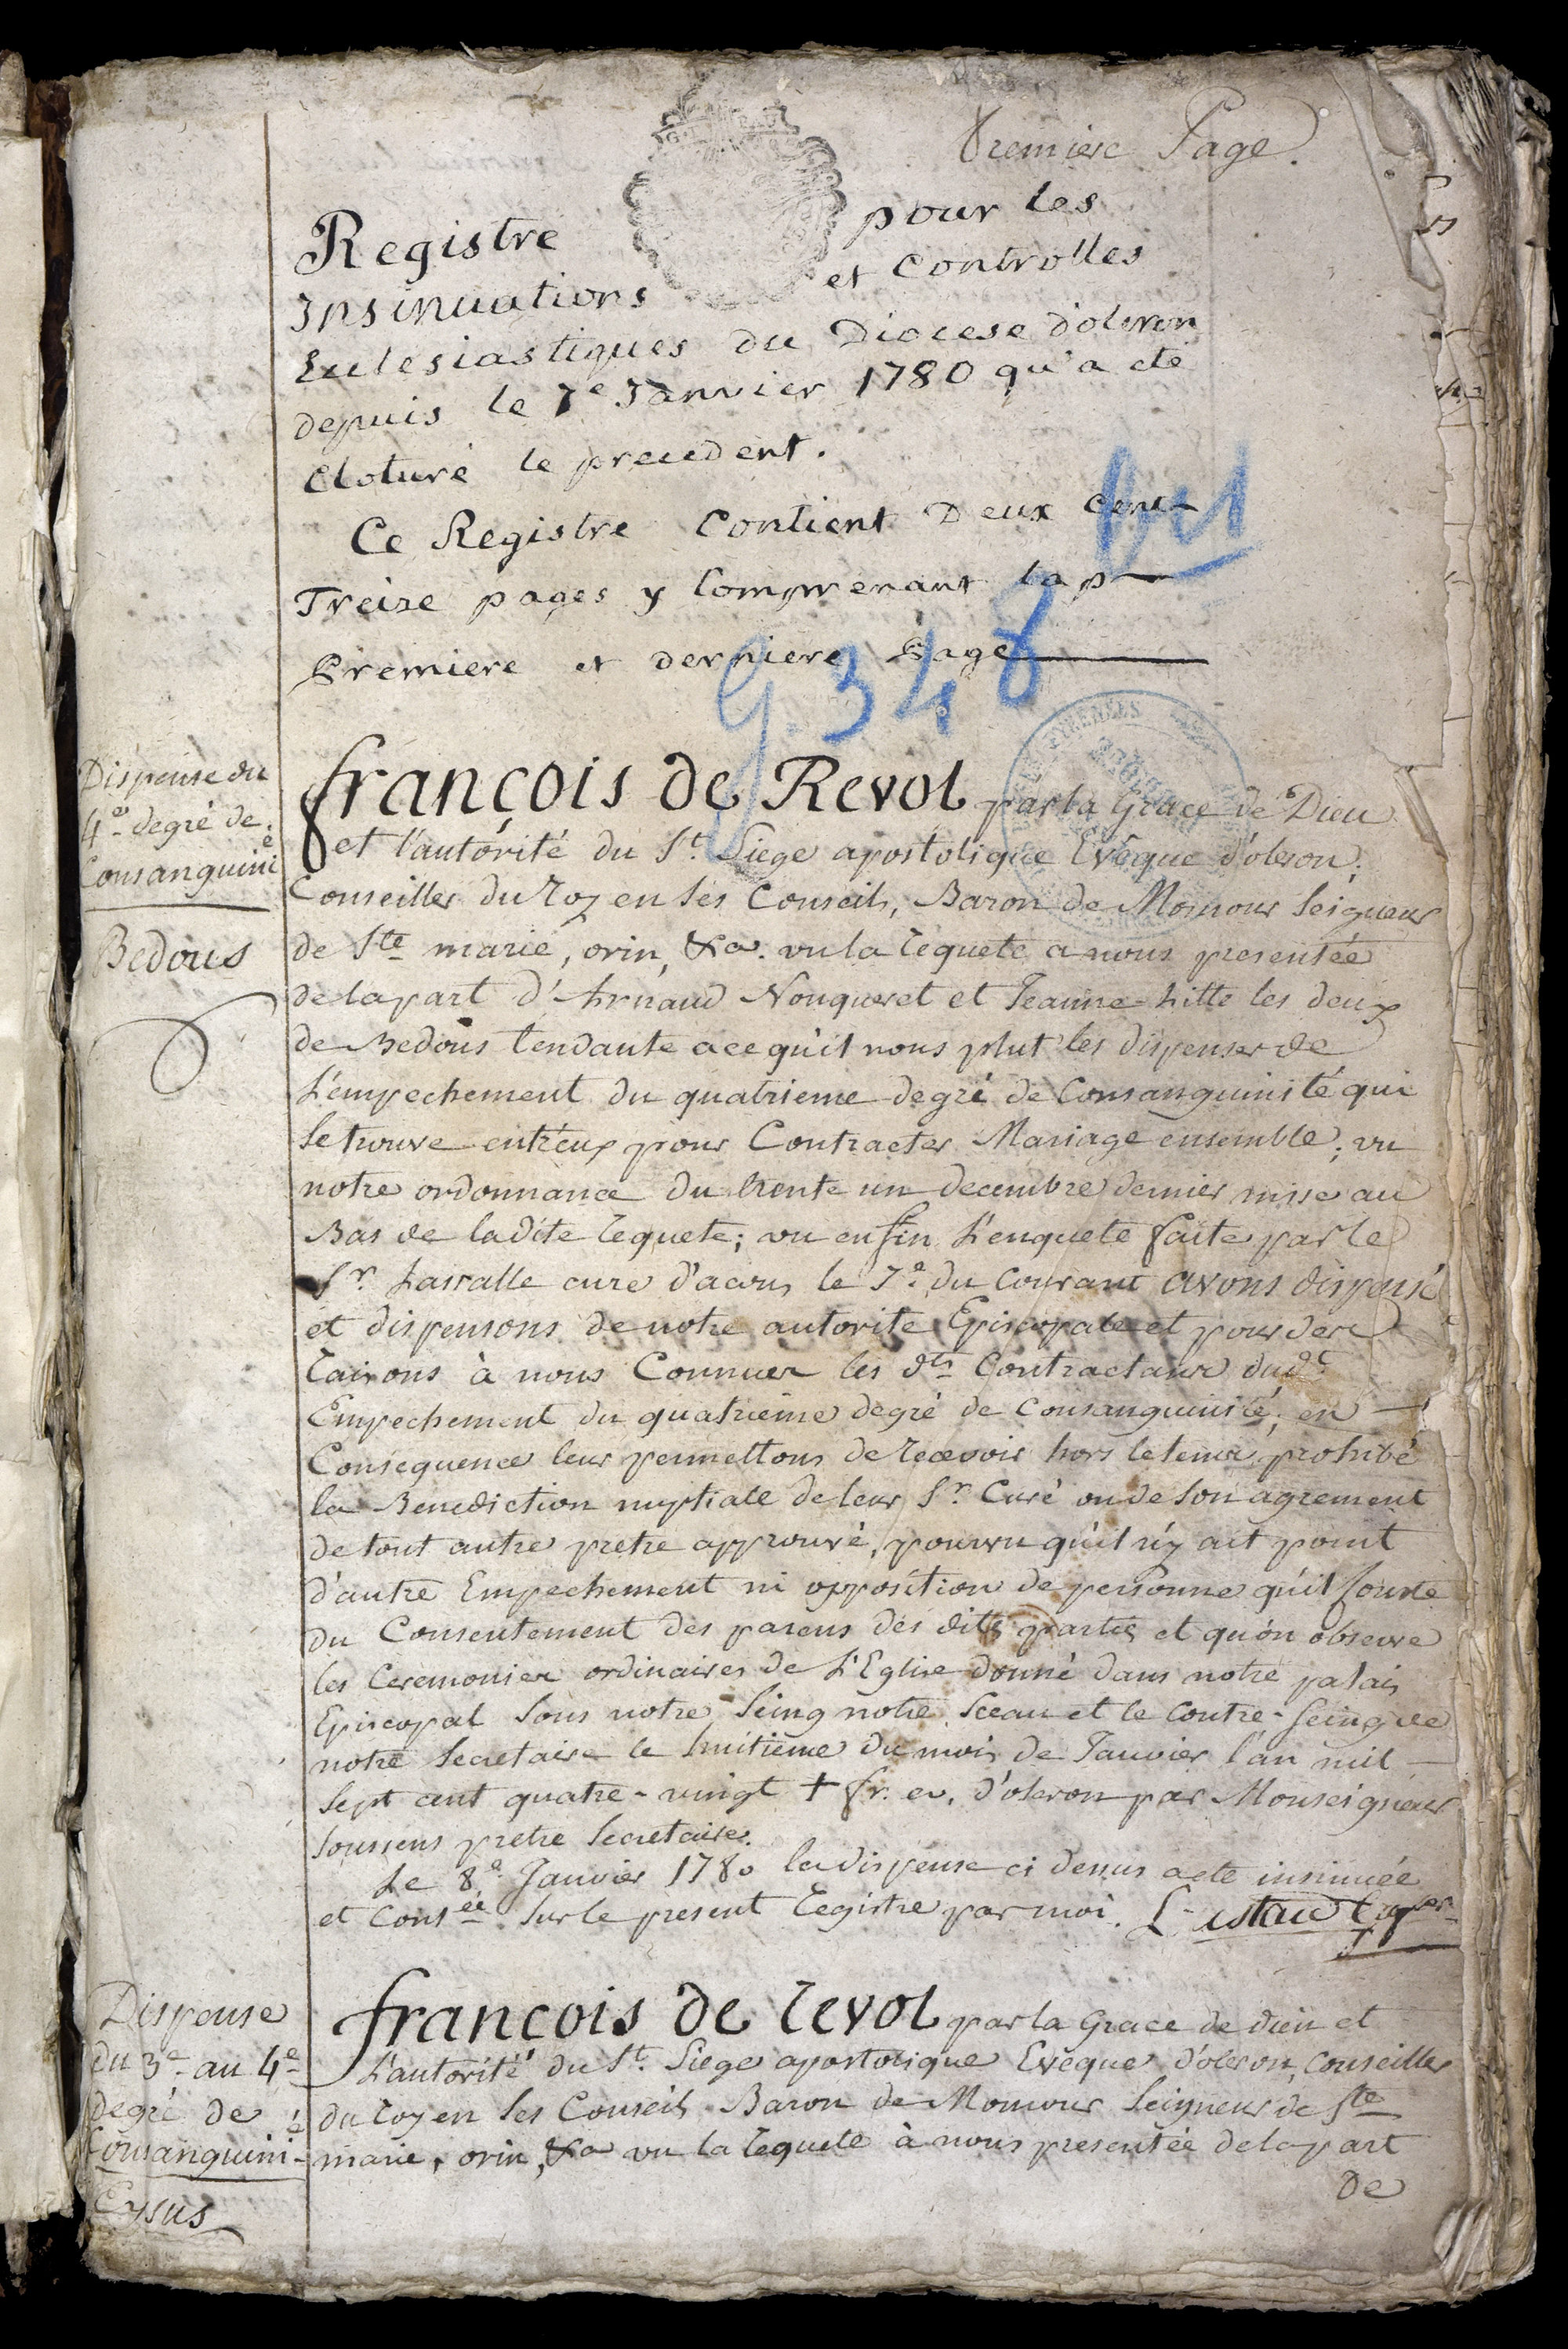 Premiere Page.
Registre pour les
Insinuations et Controlles
Ecclesiastiques du Diocese d'oleron
depuis le 7e Janvier 1780 qu'a eté
cloturé le precedent.
Ce Registre Contient Deux Cent
Treize pages y Comprenant la p
Premiere et derniere Page
G. 348
Dispense du
4e degré de
Consanguinié
Bedous
françois de Revol par la Grace de Dieu
et l'autorité du St. Siege apostolique Evêque d'oleron,
Conseiller du Roy en ses Conseils, Baron de Momour Seigneur
de Ste marie, orin, &a. vu la requete a nous presentée
de la part d'Arnaud Nouqueret et Jeanne hitte les deux
de Bedous tendante a ce qu'il nous plut les dispenser de
L'empechement du quatrieme degré de Consanguinité qui
se trouve entr'eux pour Contracter Mariage ensemble; vu
notre ordonnance du trente un decembre dernier mise au
Bas de ladite requete; vu enfin L'enquete faite par le
Sr. Lassalle curé d'acous le 7e. du Courant avons dispensé
et dispensons de notre autorité Episcopale et pour des
raisons à nous Connues les dts Contractans dudt.
Empechement du quatrieme degré de Consanguinité; en
Consequence leur permettons de recevoir hors le tems prohibé
la Benediction nuptiale de leur Sr. Curé ou de son agrement
de tout autre pretre approuvé, pourvu qu'il n'y ait point
d'autre Empechement ni opposition de personne qu'il conste
du Consentement des parens des dites parties et qu'on observe
les Ceremonies ordinaires de L'Eglise donné dans notre palais
Episcopal sous notre seing notre sceau et le Contre-seing de
notre secretaire le huitieme du mois de Janvier l'an mil
sept cent quatre-vingt + fr. ev. d'oleron par Monseigneur
Soussens pretre Secretaire.
Le 8e. Janvier 1780 la dispense ci dessus a eté insinuée
et Consée. sur le present registre par moi.
Dispense
du 3e au 4e
degré de
Consanguinié
Eysus
françois de revol par la Grace de dieu et
L'autorité du St. Siege apostolique Eveque d'oleron, Conseiller
du roy en ses Conseils Baron de Momour Seigneur de Ste
marie, orin, &a vu la requete à nous presentée de la part
de